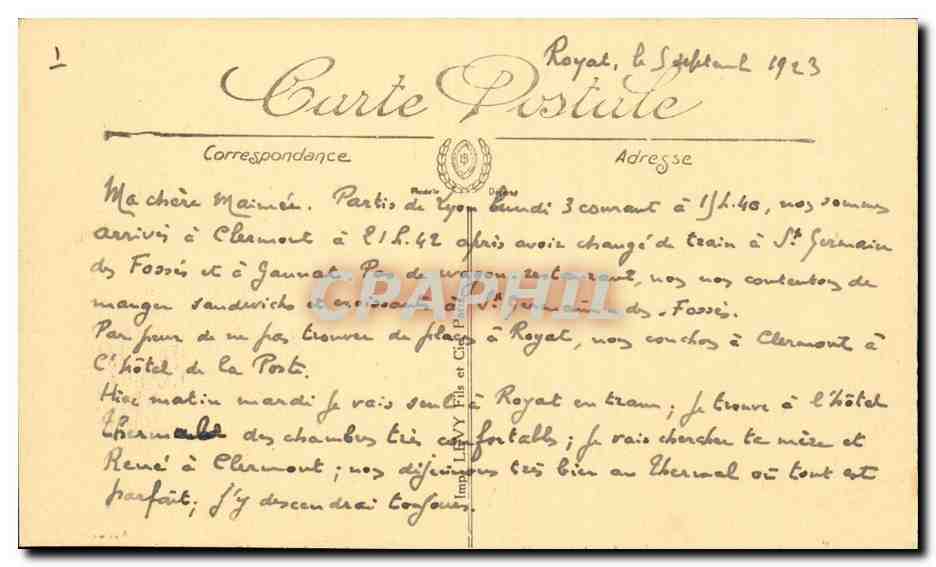 1
Royat, le 5 septembre 1923
Carte Postale
Correspondance
Adresse
Ma chère Maimée. Partis de Lyon lundi 3 courant à 15h.40, nos sommes
arrivés à Clermont à 21h.42 après avoir changé de train à St Germain
des Fossés et à Gannat. Pas de wagon restaurant, nos nos contentons de
manger sandwichs et croissants à St Germain des Fossés.
Par peur de ne pas trouver de places à Royat, nos couchons à Clermont à
l'hôtel de la Poste.
Hier matin mardi je vais seul à Royat en tram; je trouve à l'hôtel
thermal des chambres très confortables; je vais chercher ta mère et
René à Clermont; nos déjeunons très bien au Thermal où tout est
parfait; j'y descendrai toujours.
Imp. LEVY Fils et Cie Paris
CPAPHIL